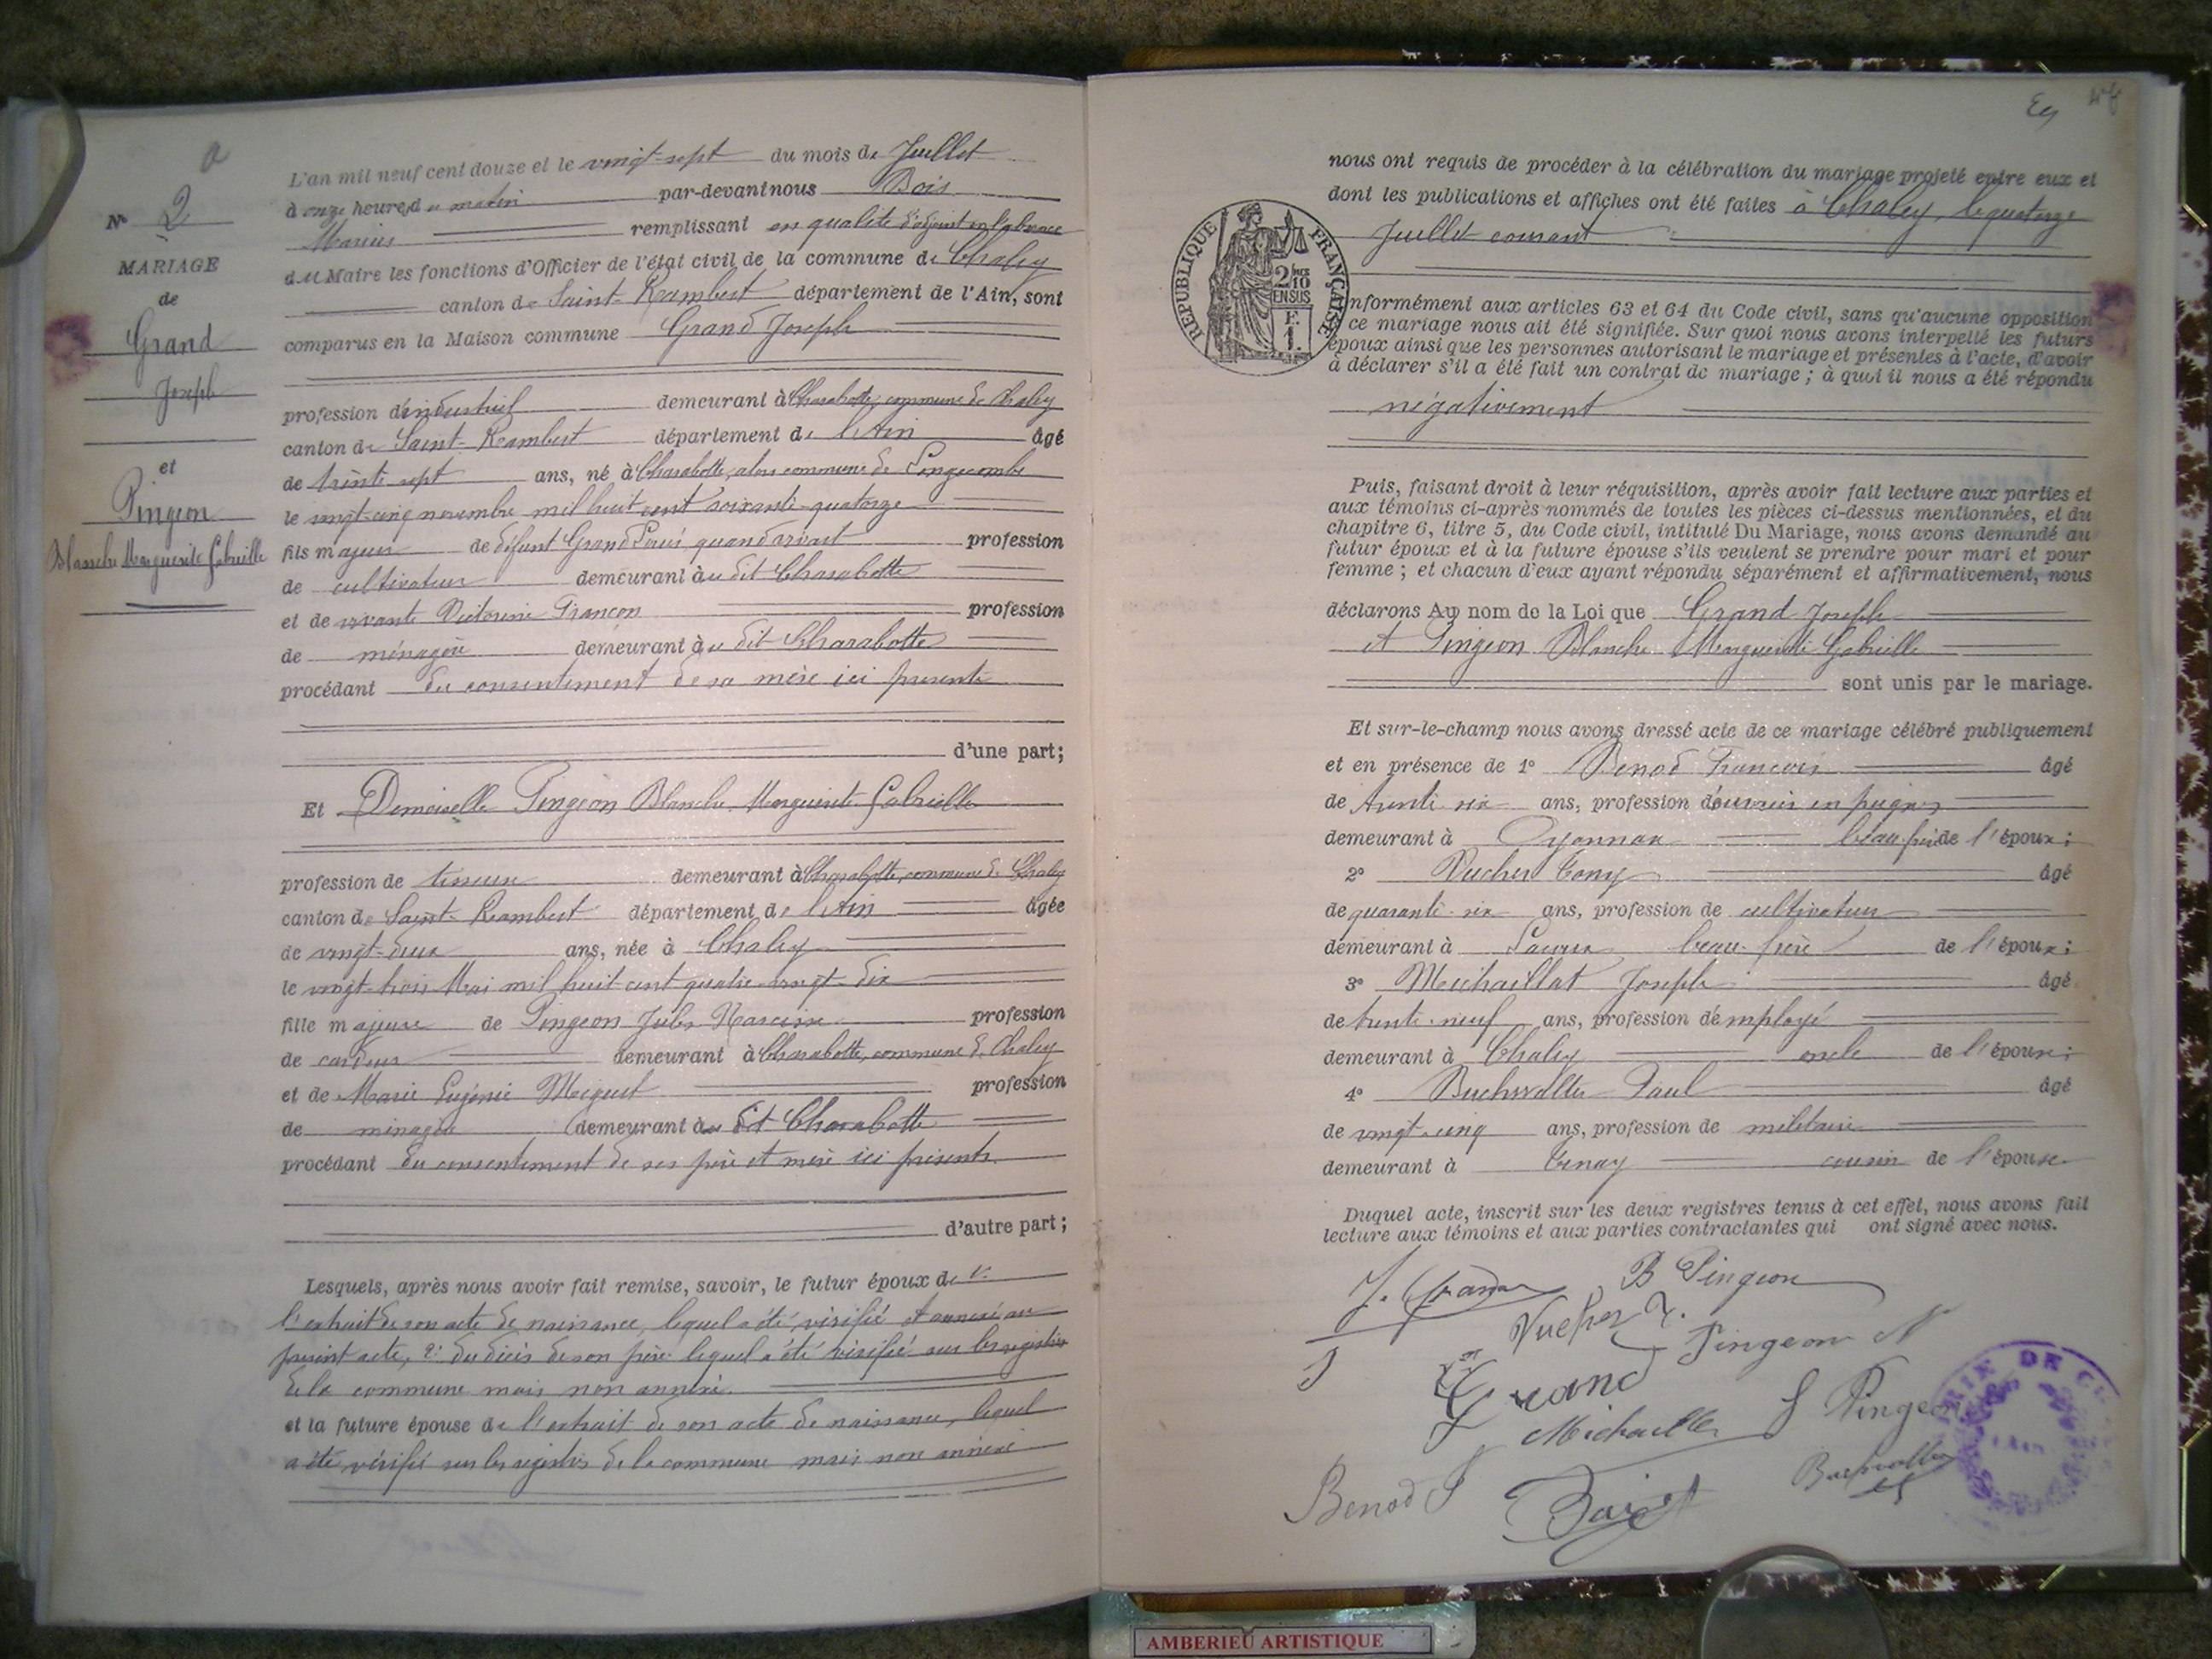 N° 2
MARIAGE
de
Grand
Joseph
et
Pingeon
Blanche Marguerite Gabrielle
L'an mil neuf cent douze et le vingt-sept du mois de Juillet
à onze heures du matin par-devant nous Bois
Marius remplissant en qualité d'adjoint en l'absence
du Maire les fonctions d'Officier de l'état civil de la commune de Chaley
canton de Saint-Rambert département de l'Ain, sont
comparus en la Maison commune Grand Joseph
profession d'industriel demeurant à Charabotte, commune de Chaley
canton de Saint-Rambert département de l'Ain âgé
de trente sept ans, né à Charabotte, alors commune de Longecombe
le vingt-cinq novembre mil huit cent soixante-quatorze
fils majeur de défunt Grand Louis quand vivait profession
de cultivateur demeurant au dit Charabotte
et de vivante Victorine Françon profession
de ménagère demeurant au dit Charabotte
procédant du consentement de sa mère ici présente
d'une part;
Et Demoiselle Pingeon Blanche Marguerite Gabrielle
profession de tisseuse demeurant à Charabotte, commune de Chaley
canton de Saint-Rambert département de l'Ain âgée
de vingt-deux ans, née à Chaley
le vingt-trois Mai mil huit cent quatre-vingt-dix
fille majeure de Pingeon Jules Narcisse profession
de cardeur demeurant à Charabotte, commune de Chaley
et de Marie Eugénie profession
de ménagère demeurant au dit Charabotte
procédant du consentement de ses père et mère ici présents.
d'autre part;
Lesquels, après nous avoir fait remise, savoir, le futur époux de 1°
l'extrait de son acte de naissance, lequel a été vérifié et annexé au
présent acte, 2° du décès de son père lequel a été vérifié sur les registres
de la commune mais non annexé.
et la future épouse de l'extrait de son acte de naissance, lequel
a été vérifié sur les registres de la commune mais non annexé
nous ont requis de procéder à la célébration du mariage projeté entre eux et
dont les publications et affiches ont été faites à Chaley, le quatorze
Juillet courant
RÉPUBLIQUE FRANÇAISE
2/10
EN SUS
F.
1.
nformément aux articles 63 et 64 du Code civil, sans qu'aucune opposition
ce mariage nous ait été signifiée. Sur quoi nous avons interpellé les futurs
époux ainsi que les personnes autorisant le mariage et présentes à l'acte, d'avoir
à déclarer s'il a été fait un contrat de mariage; à quoi il nous a été répondu
négativement
Puis, faisant droit à leur réquisition, après avoir fait lecture aux parties et
aux témoins ci-après nommés de toutes les pièces ci-dessus mentionnées, et du
chapitre 6, titre 5, du Code civil, intitulé Du Mariage, nous avons demandé au
futur époux et à la future épouse s'ils veulent se prendre pour mari et pour
femme; et chacun d'eux ayant répondu séparément et affirmativement, nous
déclarons Au nom de la Loi que Grand Joseph
et Pingeon Blanche Marguerite Gabrielle
sont unis par le mariage.
Et sur-le-champ nous avons dressé acte de ce mariage célébré publiquement
et en présence de 1° Benod François âgé
de trente six ans, profession d'ouvrier en peignes
demeurant à Oyonnax beau-frère de l'époux;
2° Vucher Tony âgé
de quarante-six ans, profession de cultivateur
demeurant à beau-frère de l'époux;
3° Michaillat Joseph âgé
de trente-neuf ans, profession d'employé
demeurant à Chaley oncle de l'épouse;
4° Buchwalter Paul âgé
de vingt-cinq ans, profession de militaire
demeurant à Tenay cousin de l'épouse.
Duquel acte, inscrit sur les deux registres tenus à cet effet, nous avons fait
lecture aux témoins et aux parties contractantes qui ont signé avec nous.
J. Grand B Pingeon
Vucher T. Pingeon N
Grand
J Pingeon
Benod F
AMBERIEU ARTISTIQUE